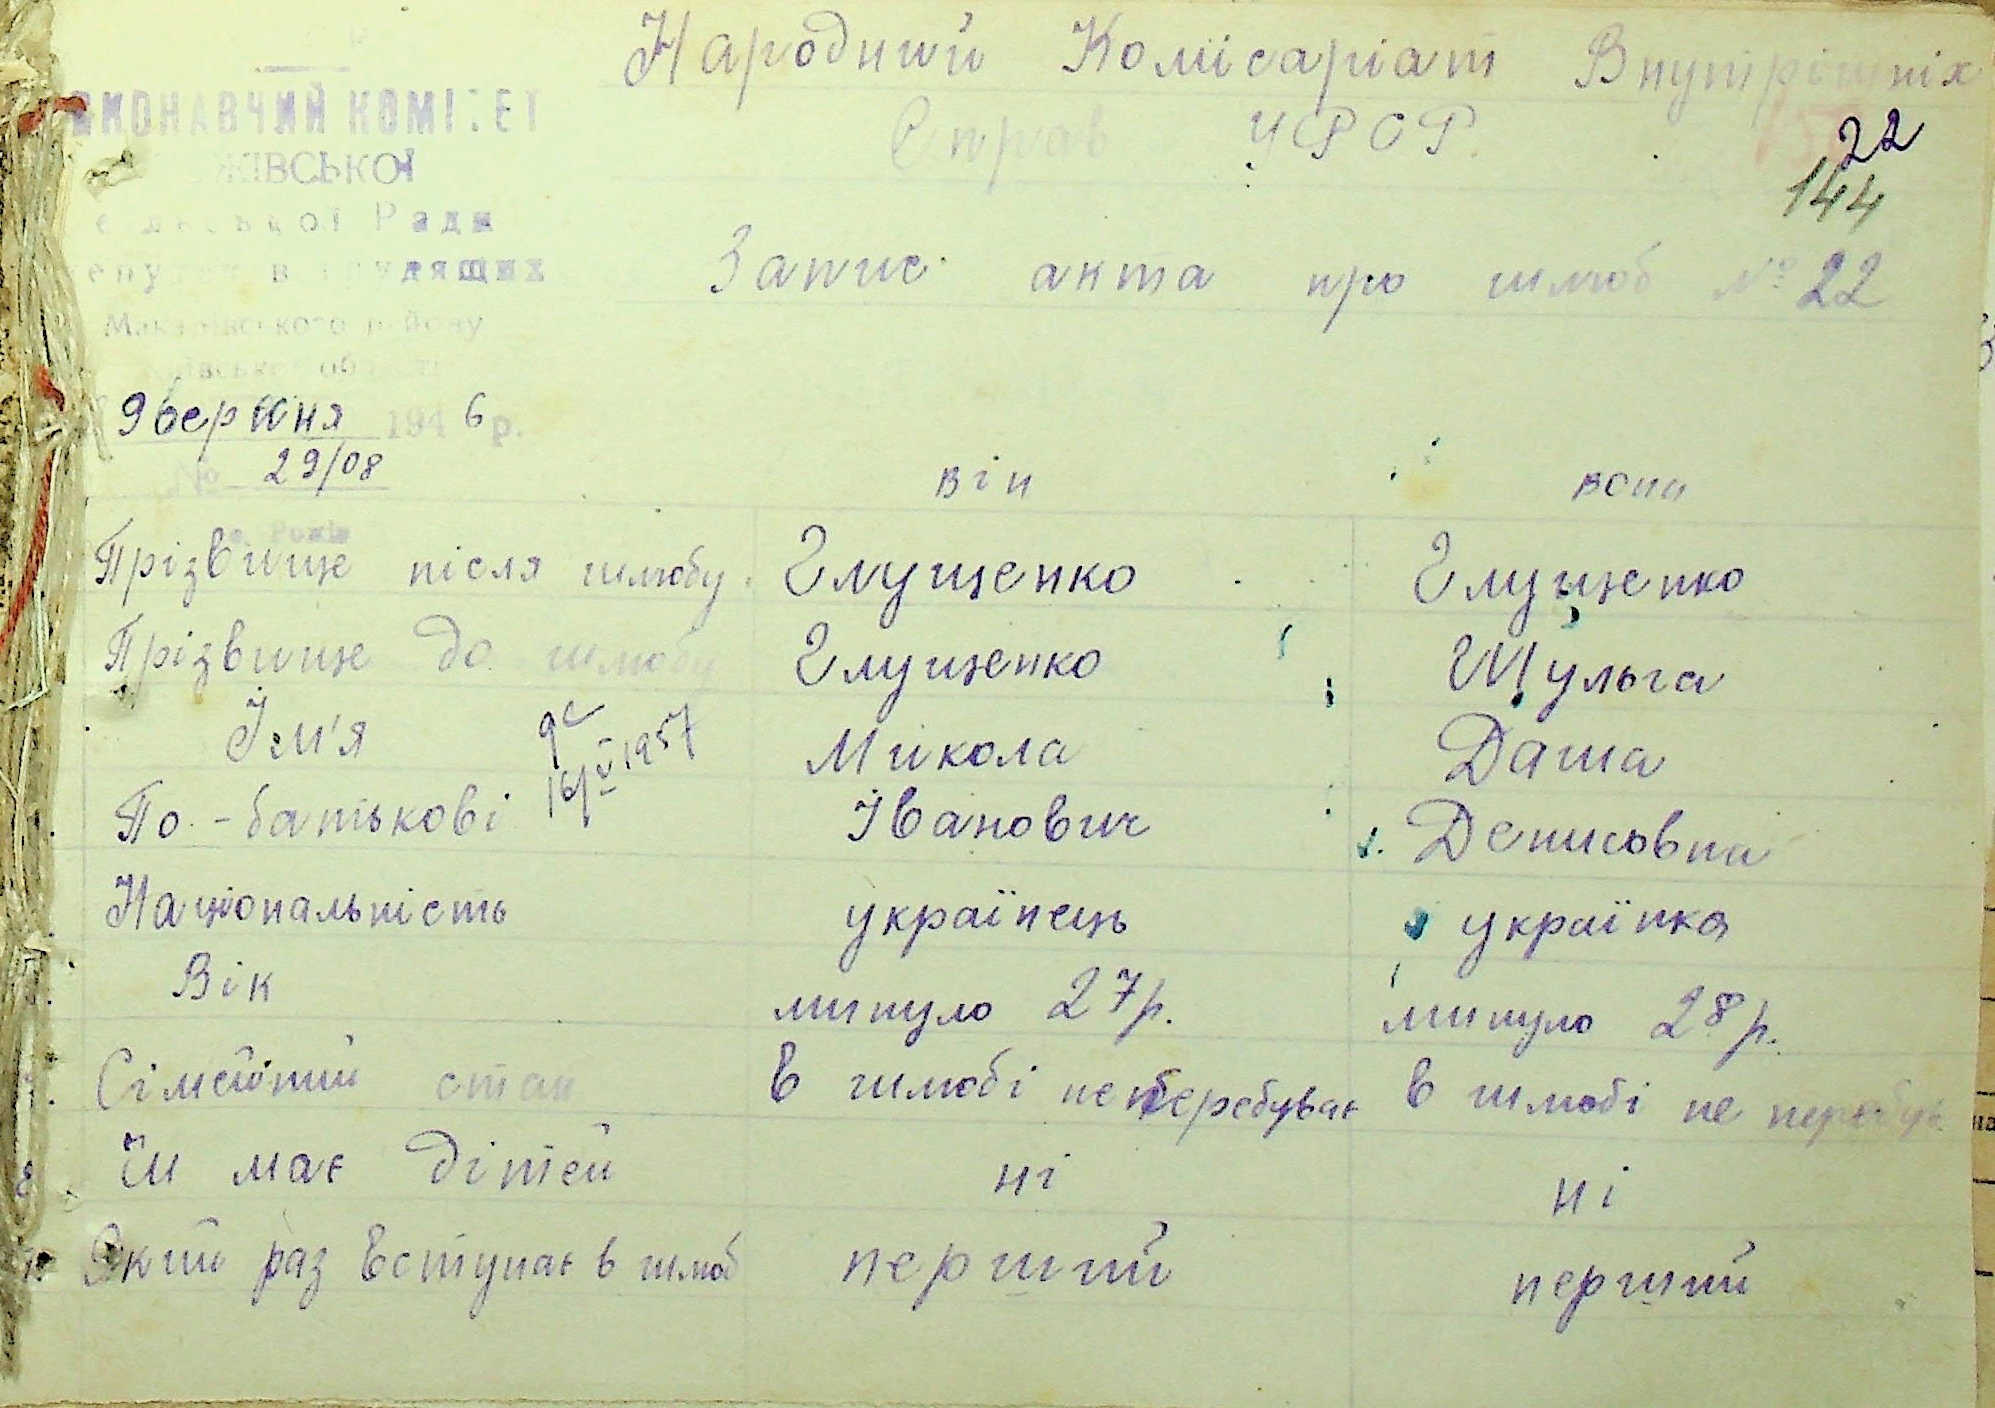 Народний Комісаріат Внутрішніх
Справ УРСР.
22
144
ВИКОНАВЧИЙ КОМІТЕТ
ЖІВСЬКОЇ
Ради
трудящих
Макарівського району
9 березня 1946 р.
№ 29/08
с. Рожів
Запис акта про шлюб № 22
він вона
Прізвище після шлюбу. Глущенко Глущенко
Прізвище до шлюбу Глущенко Шульга
Ім'я Микола Даша
16/V 1957
По-батькові Іванович Денисовна
Національність українець українка
Вік минуло 27 р. минуло 28 р.
Сімейний стан в шлюбі не перебуває в шлюбі не перебув
Чи має дітей ні ні
Який раз вступає в шлюб перший перший